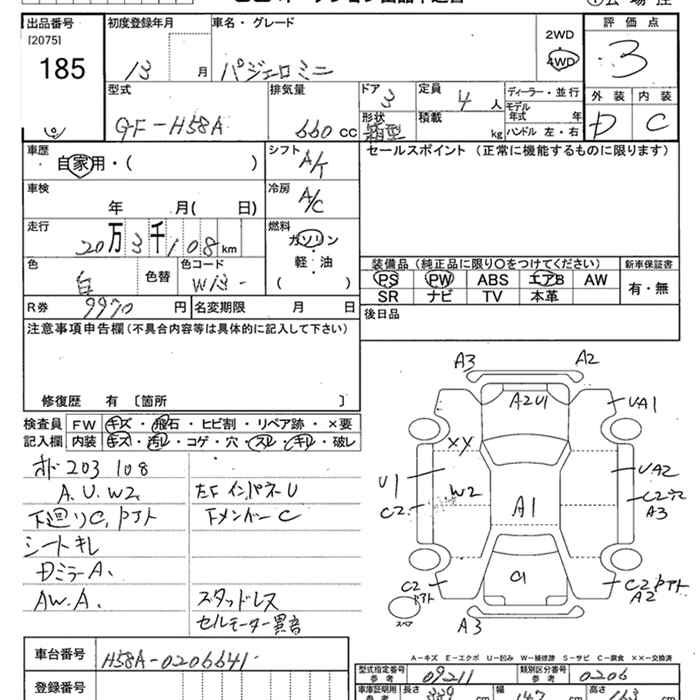 出品番号
[2075]
185
初度登録年月
13 月
車名・グレード
パジェロミニ
2WD
4WD
評価点
3
外装 内装
D C
型式
GF-H58A
排気量
660 cc
ドア
3
形状
箱型
定員
4 人
積載
kg
ディーラー・並行
モデル年式 年
ハンドル 左・右
車歴
自家用・( )
シフト
A/T
セールスポイント (正常に機能するものに限ります)
車検
年 月( 日)
冷房
A/C
走行
20万3千108km
燃料
ガソリン
軽・油
( )
色
白
色替
色コード
W13-
装備品 (純正品に限り〇をつけてください)
PS PW ABS エアB AW
SR ナビ TV 本革
新車保証書
有・無
R券
9970 円
名変期限 月 日
後日品
注意事項申告欄 (不具合内容等は具体的に記入して下さい)
修復歴 有 [箇所 ]
検査員記入欄
FW キズ・飛石・ヒビ割・リペア跡・×要
内装 キズ・汚レ・コゲ・穴・スレ・キレ・破レ
オド 203108
A.U.W2
下廻りC.Pアト
シートキレ
DミラーA.
AW.A.
左Fインパネ-U
Fメンバー C
スタッドレス
セルモーター異音
A3 A2
A2U1
UA1
XX
U1
C2
W2
A1
UA2
A3
C1
C2
A2
A3
スペア
A-キズ E-エクボ U-凹み W-補修跡 S-サビ C-腐食 ××-交換済
車台番号
H58A-0206641-
登録番号
型式指定番号
参考
09211
類別区分番号
参考
0206
車庫証明用
参考
長さ
339 cm
幅
147 cm
高さ
163 cm